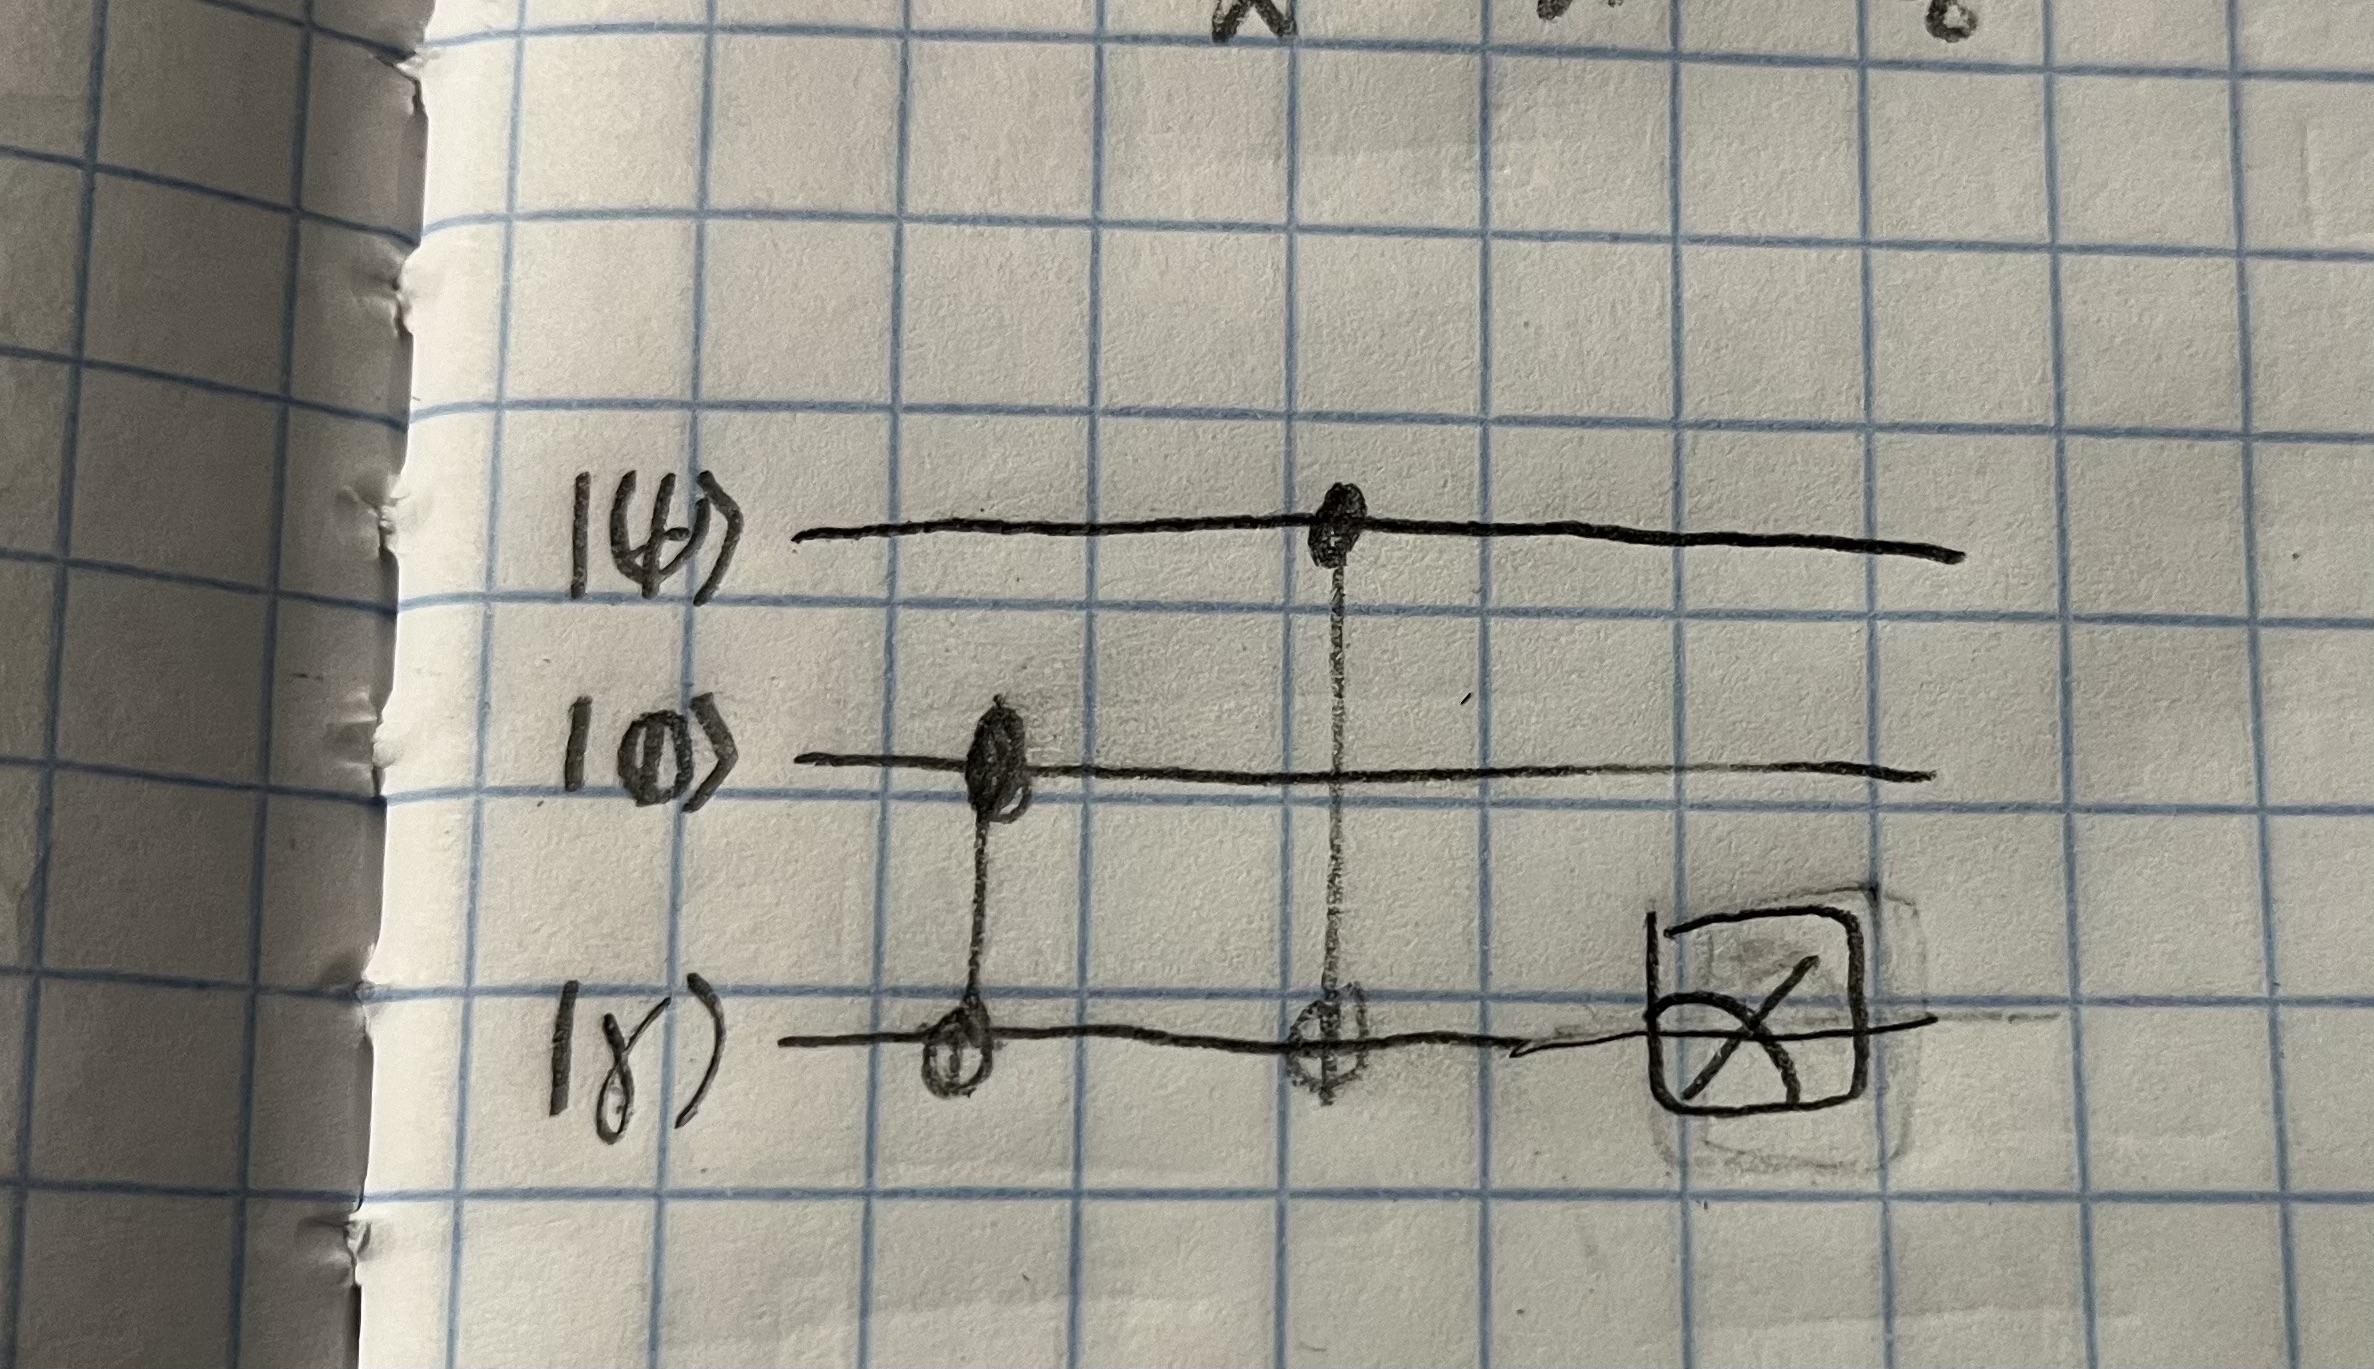 |ψ⟩
|Φ⟩
|γ⟩